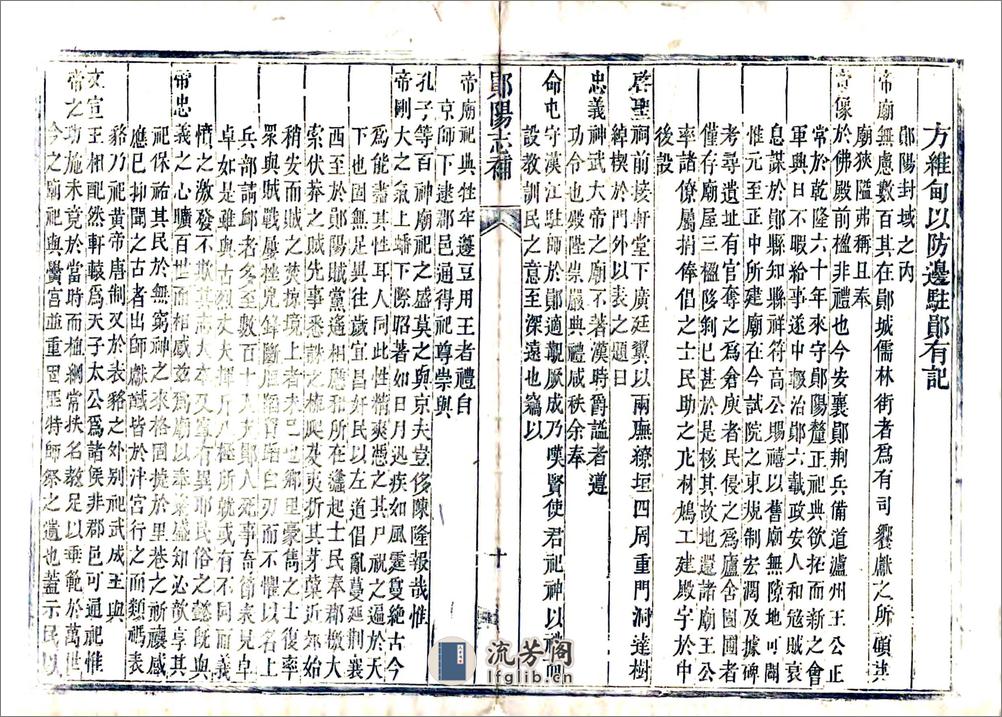 方維甸以防邊駐鄖有記
鄖陽封域之內
帝廟無慮數百其在鄖城儒林街者爲有司饗獻之所頓其
廟狹隘弗稱且奉
帝像於佛殿前楹非禮也今安襄鄖荆兵備道瀘州王公正
常於乾隆六十年來守鄖陽釐正祀典欲拓而新之會
軍興日不暇給事遂中輟治鄖六載政安人和寇賊衰
息謀於鄖縣知縣祥符高公賜禧以舊廟無隙地可闢
惟元至正中所建廟在今試院之東規制宏濶及據碑
考尋遺址有官奪之爲倉庾者民侵之爲廬舍園圃者
僅存廟屋三楹陊剝已甚於是核其故地還諸廟王公
率諸僚屬捐俸倡之士民助之庀材鳩工建殿宇於中
後設
啓聖祠前接軒堂下廣廷翼以兩廡繚垣四周重門洞達樹
綽楔於門外以表之題曰
忠義神武大帝之廟不著漢時爵謚者遵
功令也不毀陛崇嚴典禮咸秩余奉
命屯守漢江駐師於鄖適觀厥成乃嘆賢使君祀神以禮與
設敎訓民之意至深遠也竊以
鄖陽志補
十
帝廟祀典牲牢籩豆用王者禮自
京師下逮郡邑通得祀尊崇與
孔子等百神廟祀之盛莫之與京夫豈侈陳隆報哉惟
帝剛大之氣上蟠下際昭著如日月迅疾如風霆亙絶古今
爲能盡其性耳人同此性精爽憑之其尸祝之遍於天
下也固無足異往歲宜昌奸民以左道倡亂蔓延荆襄
西至於鄖陽賊黨遙相應和所在蠭起士民奉郡檄大
索伏莽之賊先事悉誅之梳爬芟夷折其芽蘖近郊始
稍安而賊之焚掠境上者未已也鄉里豪雋之士復率
眾與賊戰屢挫兇鋒斷脰蹈寶踣白刃而不懼以名上
兵部請卹者多至
卓如是雖與古烈丈夫
憤之激發不
帝忠義之心曠百世而相感茲爲廟以奉粢盛知必歆享其
祀保祐其民於無窮神之來格固捷於里巷之祈禳感
應已抑聞之古者出師獻馘皆於泮宮行之而類禡表
貉乃祀黃帝唐制又於表貉之外别祀武成王與
文宣王相配然軒轅爲天子太公爲諸侯非郡邑可通祀惟
帝之功施未竟於當時而植綱常扶名敎足以垂範於萬世
今之廟祀與黌宮並重固匪特師祭之遺也蓋示民以
流芳阁
lfglib.cn